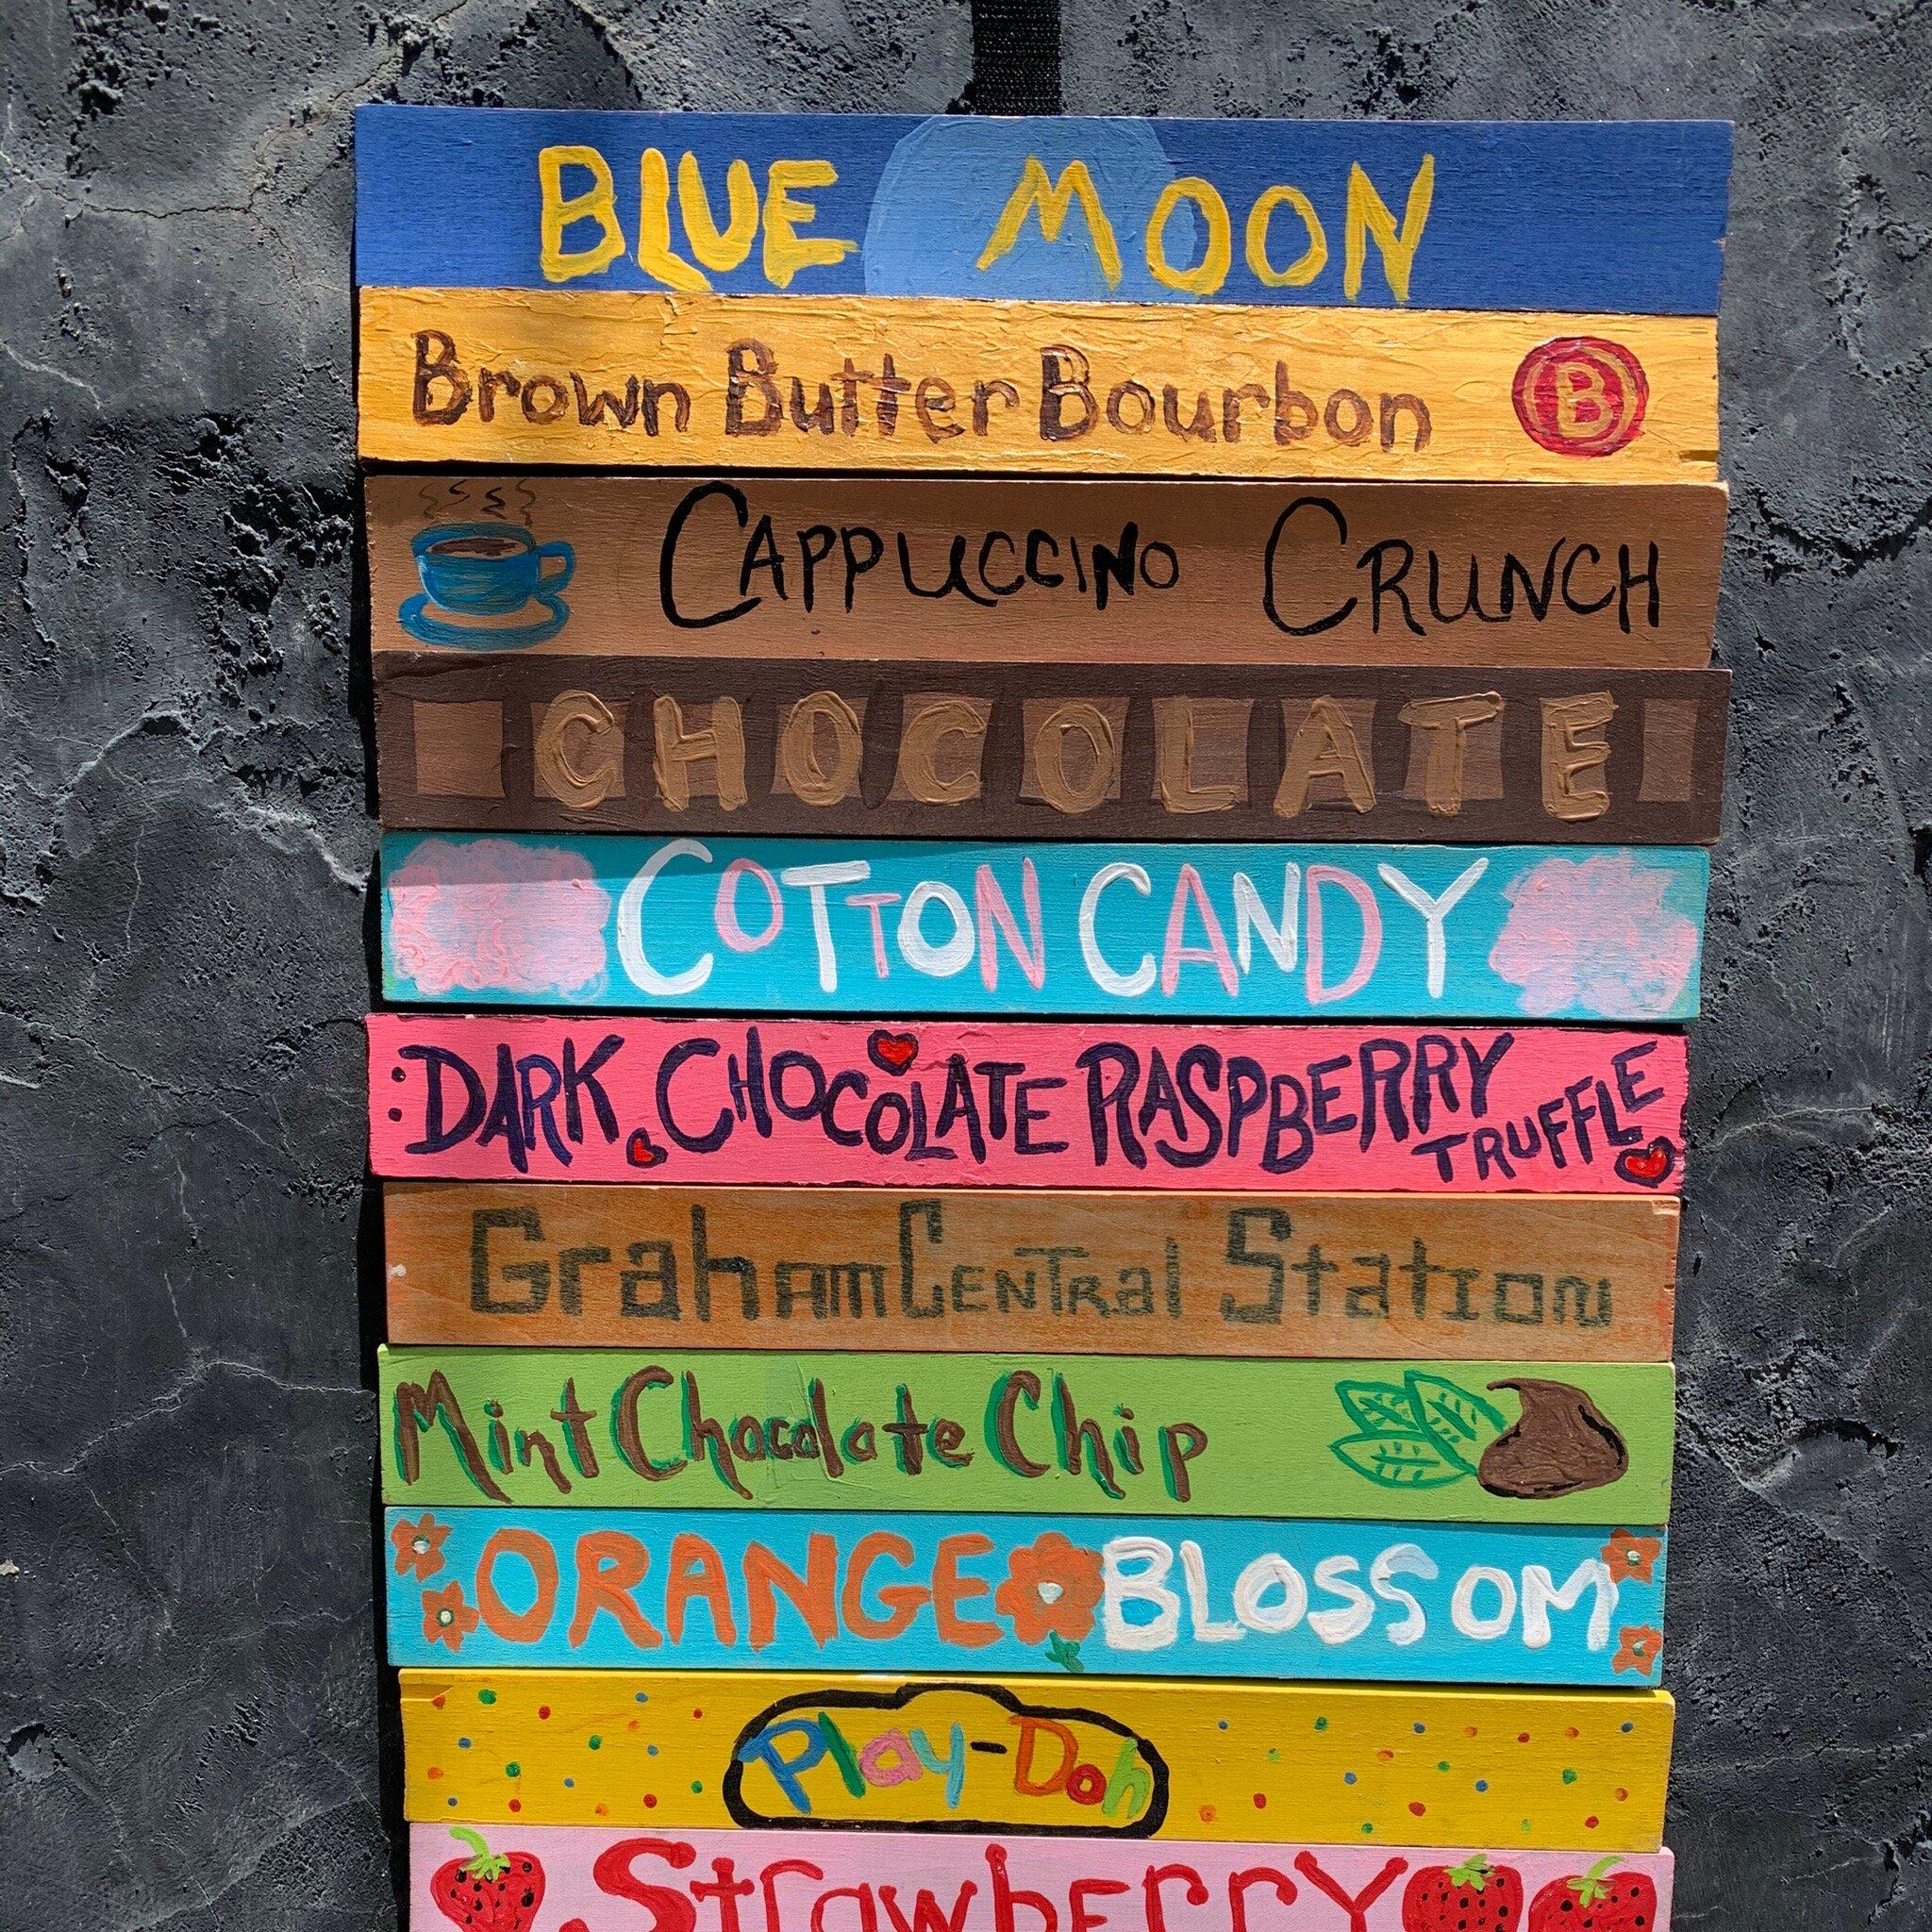 BLUE MOON
Brown Butter Bourbon B
CAPPUCCINO CRUNCH
CHOCOLATE
COTTON CANDY
DARK CHOCOLATE RASPBERRY
TRUFFLE
Graham Central Station
Mint Chocolate Chip
ORANGE BLOSSOM
Play-Doh
Strawberry